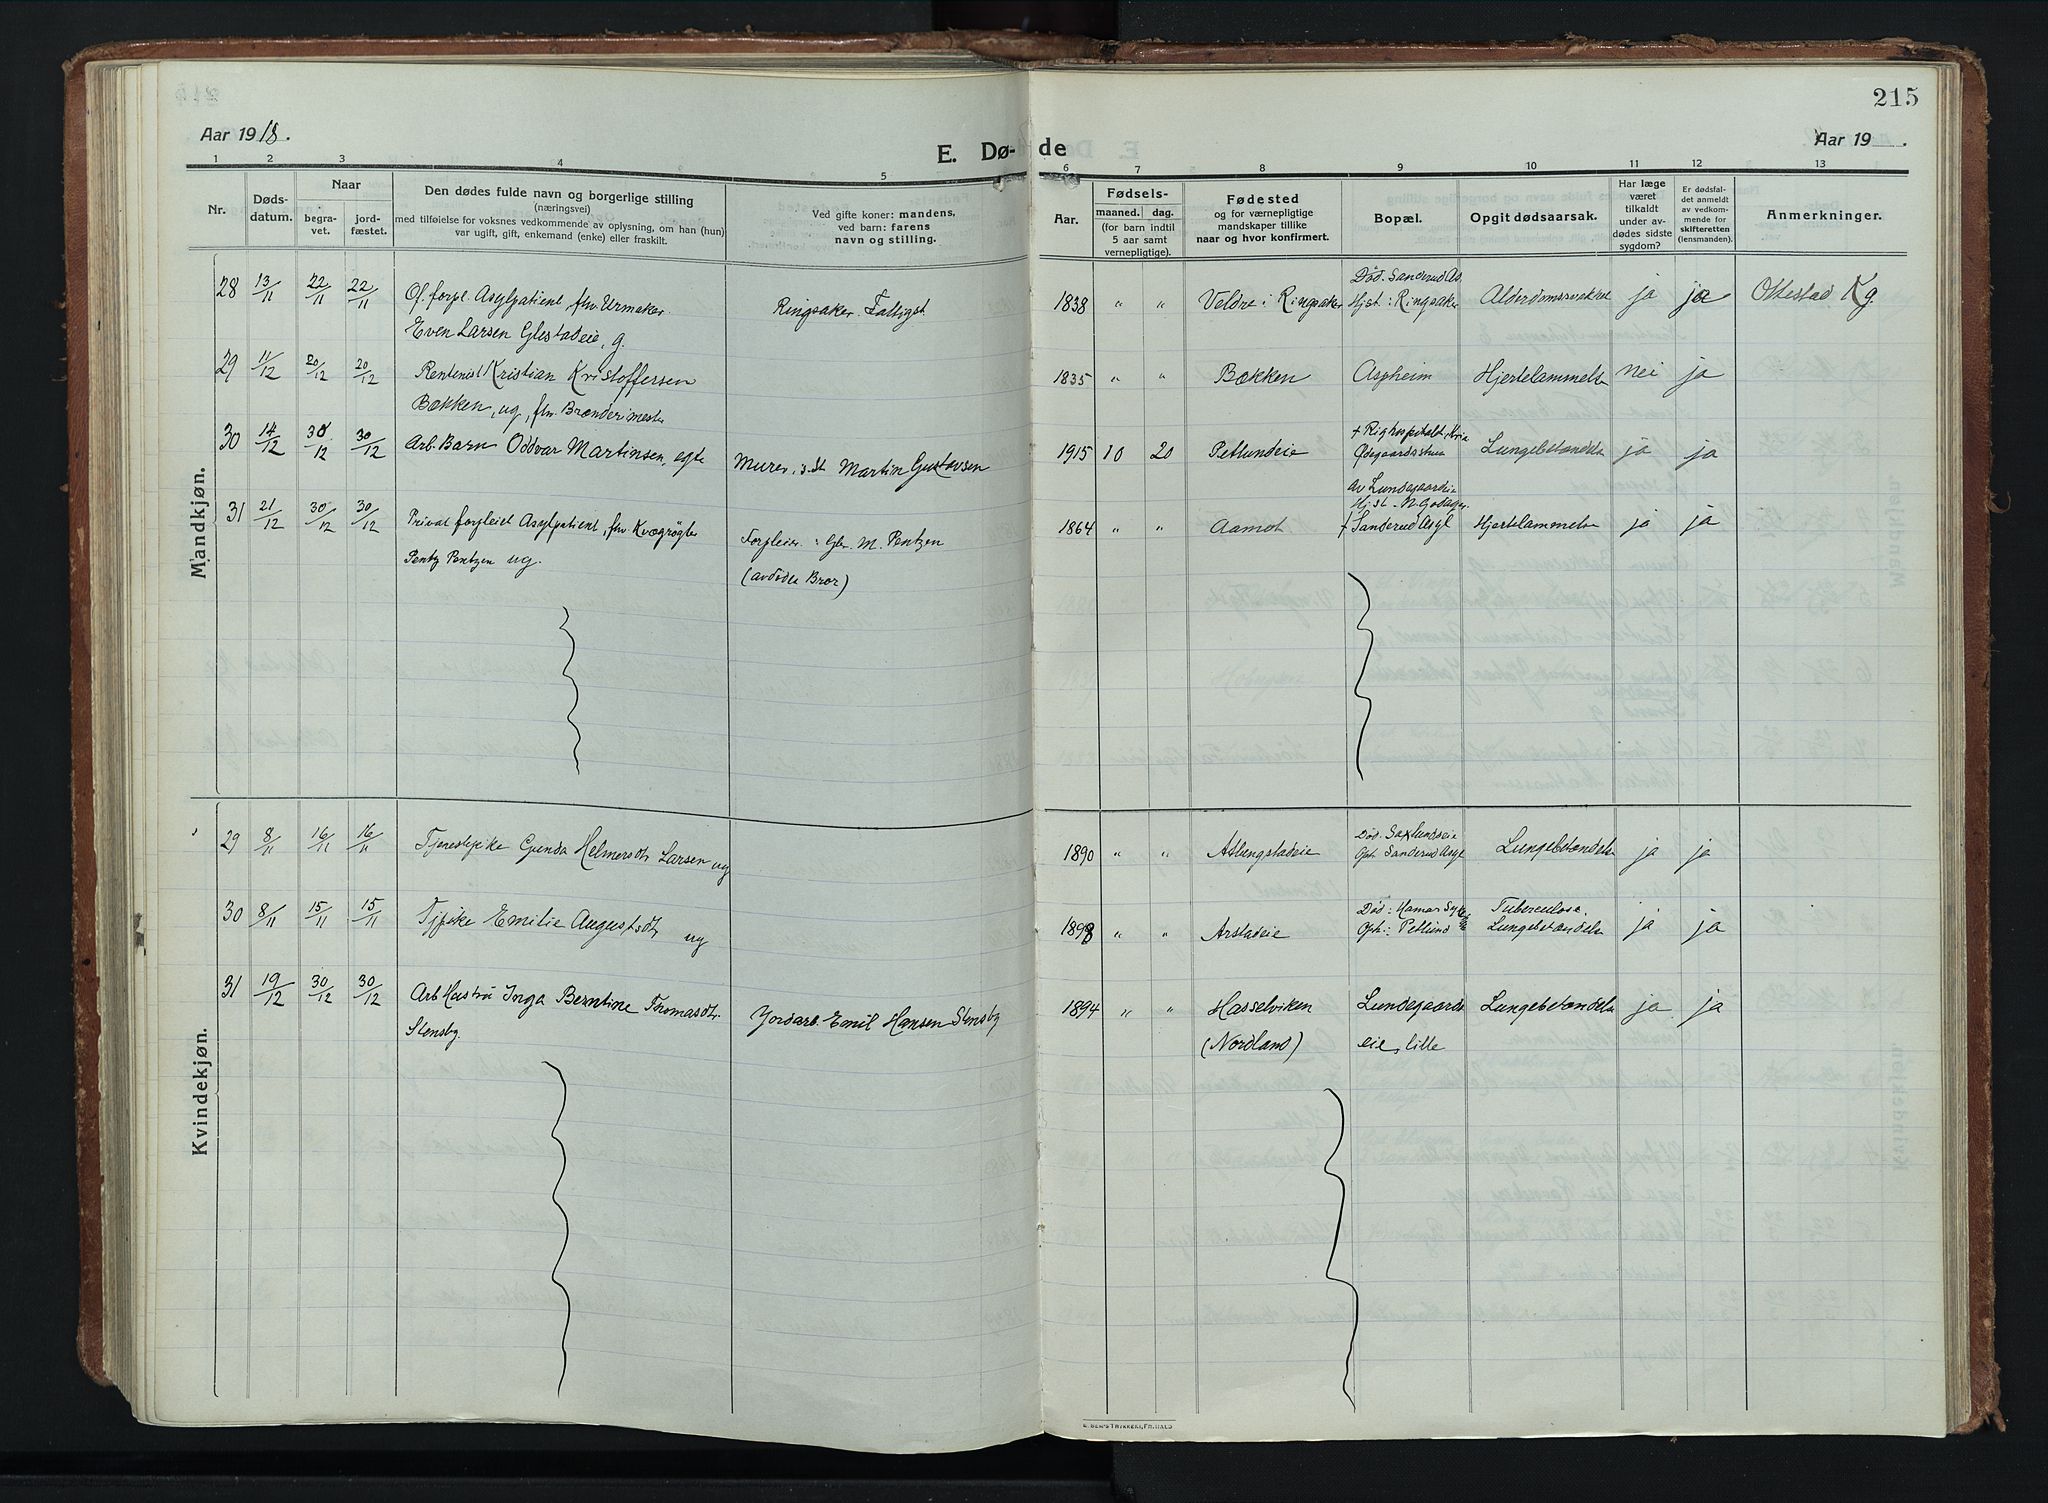 215
Aar 1918.
E. Døde
Aar 19 .
1 2 3 4 5 6 7 8 9 10 11 12 13
Nr.
Døds-
datum.
Naar
begra-
vet.
jord-
fæstet.
Den dødes fulde navn og borgerlige stilling
(næringsvei)
med tilføielse for voksnes vedkommende av oplysning, om han (hun)
var ugift, gift, enkemand (enke) eller fraskilt.
Ved gifte koner: mandens,
ved barn: farens
navn og stilling.
Aar.
Fødsels-
maaned. dag.
(for barn indtil
5 aar samt
vernepligtige).
Fødested
og for værnepligtige
mandskaper tillike
naar og hvor konfirmert.
Bopæl.
Opgit dødsaarsak.
Har læge
været
tilkaldt
under av-
dødes sidste
sygdom?
Er dødsfal-
det anmeldt
av vedkom-
mende for
skifteretten
(lensmanden).
Anmerkninger.
Mandkjøn.
28 13/11 22/11 22/11 Of. forpl. Asylpatient, fhv. Urmaker
Even Larsen Glestadeie, g.
Ringsaker Fattigst
1838 " " Veldre i Ringsaker
Død. Sanderud As.
Hjst: Ringsaker
Alderdomssvakhet ja ja Ottestad Kg.
29 11/12 20/12 20/12 Rentenist Kristian Kristoffersen
Bækken, ug, fhv. Brænderimester
1835 " " Bækken Aspheim Hjertelammelse nei ja
30 14/12 30/12 30/12 Arb. Barn Oddvar Martinsen, egte
Murer, Martin Gustavsen
1915 10 20 Petlundeie
+ Righospitalet, Kria
Ødegaardsstuen
Lungebetændelse ja ja
31 21/12 30/12 30/12 Privat forpleiet Asylpatient, fhv Kvægrøgter
Pentz Pentzen ug.
Forpleier: Gbr. M. Pentzen
(avdødes Bror)
1864 " " Aamot
Av Lundegaardeie
Hjst N. Godager
+ Sanderud Asyl
Hjertelammelse ja ja
Kvindekjøn.
29 8/11 16/11 16/11 Tjenestepike Gunda Helmersdtr Larsen ug
1890 " " Atlungstadeie
Død. Saxlundeie
Oph. Sanderud Asyl
Lungebetændelse ja ja
30 8/11 15/11 15/11 Tjpike Emilie Augustsdtr ug
1898 " " Arstadeie
Død: Hamar Sykehus
Oph: Petlund
Tuberculose.
Lungebetændelse
ja ja
31 19/12 30/12 30/12 Arb Hustru Inga Berntine Thomasdtr.
Stensby.
Jordarb. Emil Hansen Stensby
1894 " " Hasselviken
(Nordland)
Lundegaards
eie, lille
Lungebetændelse ja ja